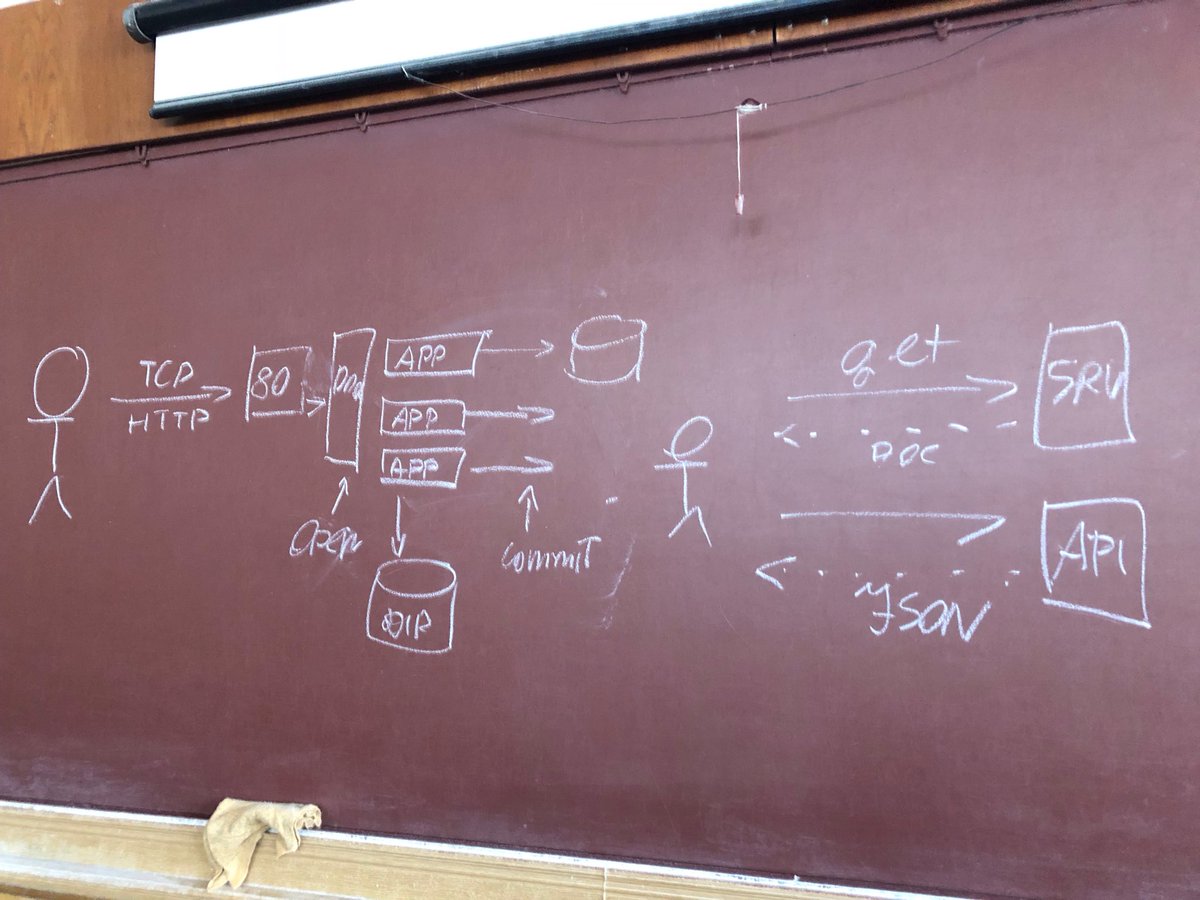 TCP
HTTP
80
APP
APP
APP
open
commit
get
DOC
SRV
JSON
API